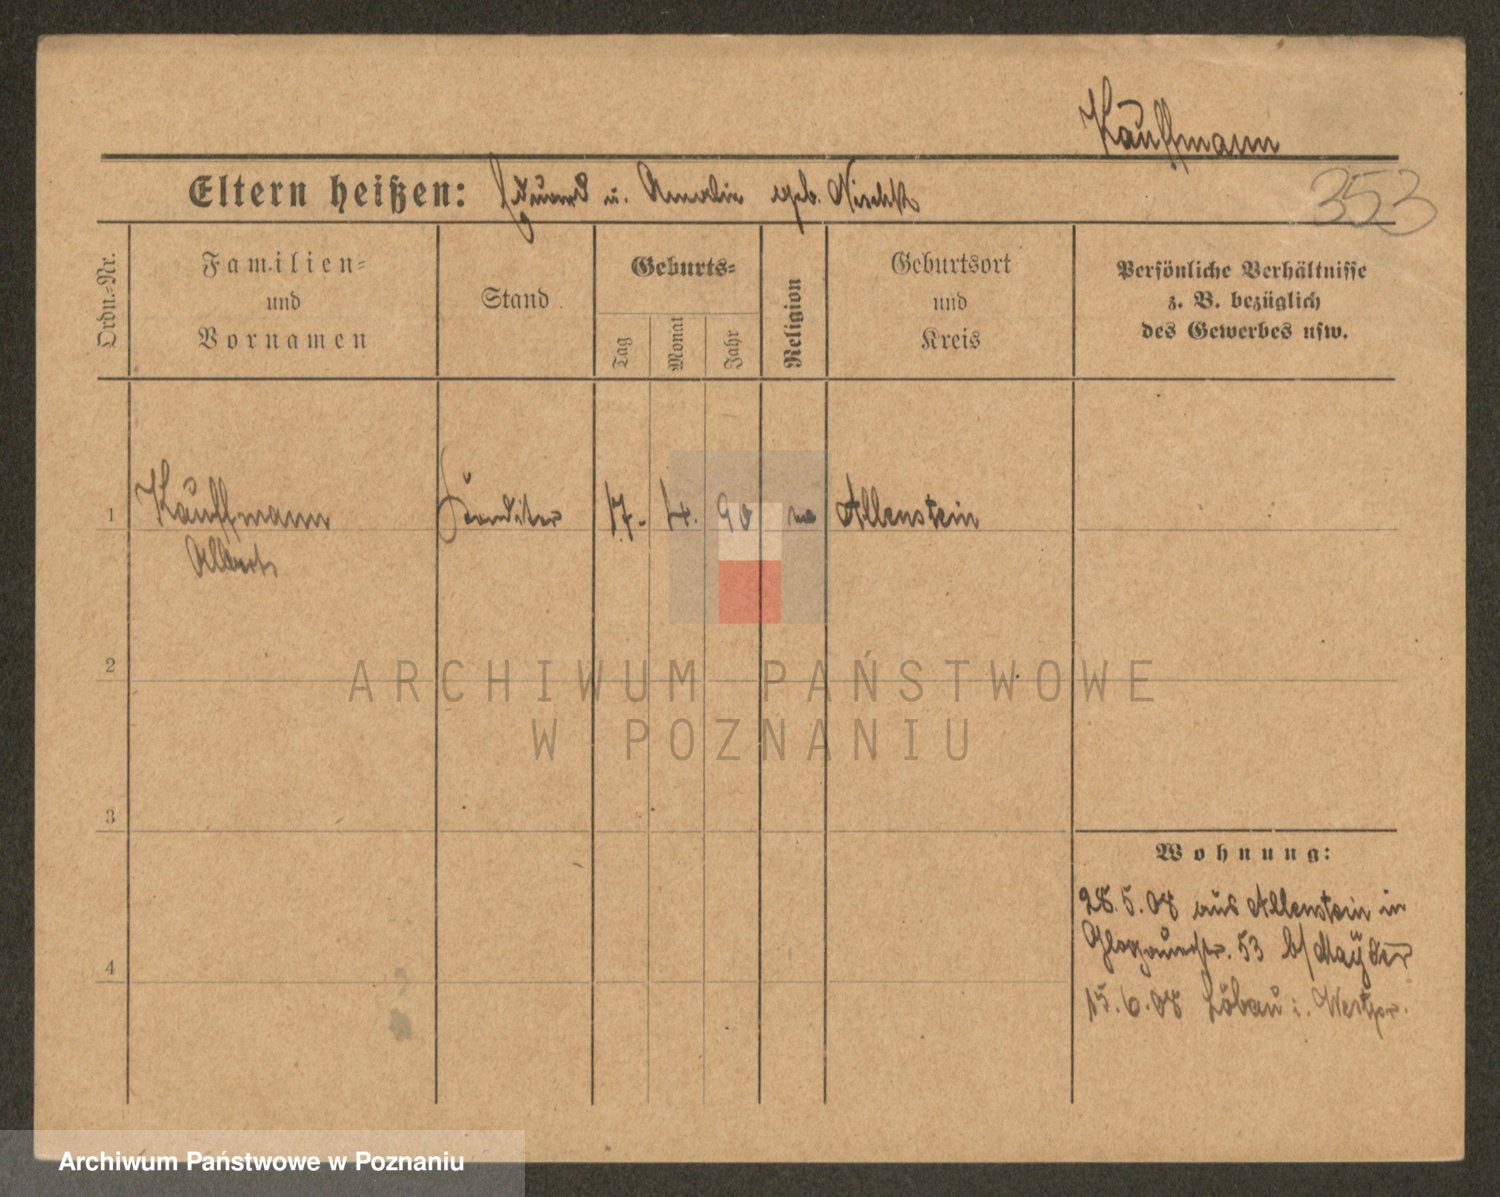 Kauffmann
353
Eltern heißen: Eduard u. Amalie geb.
Ordn.-Nr.
Familien-
und
Vornamen
Stand
Geburts-
Tag
Monat
Jahr
Religion
Geburtsort
und
Kreis
Persönliche Verhältnisse
z. B. bezüglich
des Gewerbes usw.
1
Kauffmann
Albert
Konditor
17.
4.
90
Allenstein
2
ARCHIWUM PAŃSTWOWE
W POZNANIU
3
Wohnung:
28.5.08 aus Allenstein in
Glogauerstr. 53 b/
4
15.6.08 Löbau i. Westpr.
Archiwum Państwowe w Poznaniu